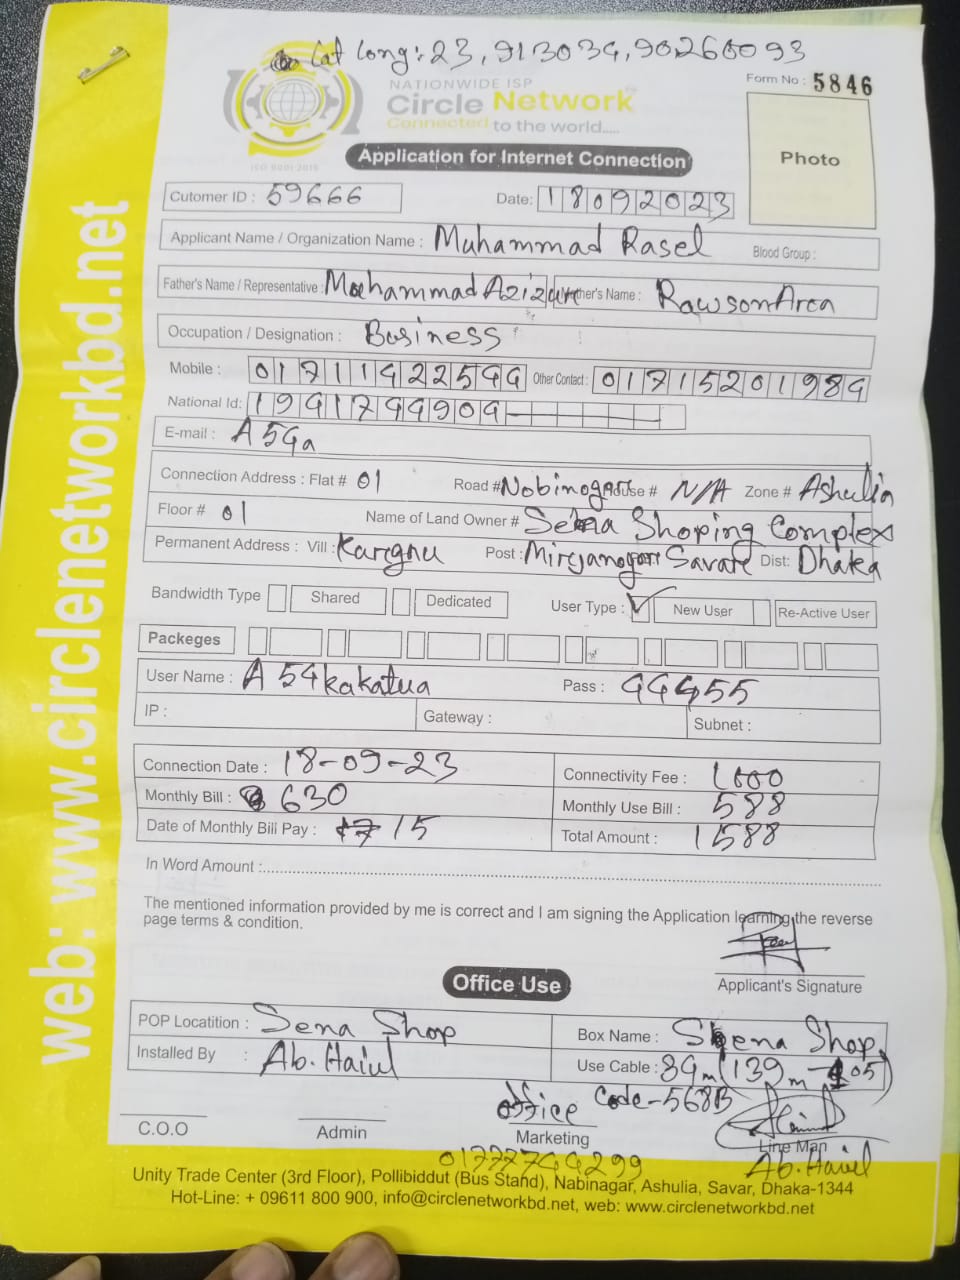 Lat Long: 23,913034,90260093
NATIONWIDE ISP
Circle Network
Connected to the world.....
ISO 9001:2015
Form No : 5846
Application for Internet Connection
Photo
Cutomer ID : 59666
Date: 18092023
Applicant Name / Organization Name : Muhammad Rasel Blood Group :
Father's Name / Representative : Mohammad Azizur Mother's Name : Rawson Area
Occupation / Designation : Business
Mobile : 01711422544 Other Contact : 01715201984
National Id: 1941744904
E-mail : A54a
Connection Address : Flat # 01 Road # Nobinogar House # N/A Zone # Ashulia
Floor # 01 Name of Land Owner # Sena Shoping Complex
Permanent Address : Vill : Post : Dist: Dhaka
Bandwidth Type Shared Dedicated User Type : New User Re-Active User
Packeges
User Name : A 54kakatua Pass : 44455
IP : Gateway : Subnet :
Connection Date : 18-09-23 Connectivity Fee : 1000
Monthly Bill : 630 Monthly Use Bill : 588
Date of Monthly Bill Pay : 15 Total Amount : 1588
In Word Amount :
The mentioned information provided by me is correct and I am signing the Application learning the reverse
page terms & condition.
Applicant's Signature
Office Use
POP Locatition : Sena Shop Box Name : Sena Shop
Installed By : Ab. Haiul Use Cable : 34m (139m - 105)
office Code-568B
C.O.O Admin Marketing Line Man
01777744299 Ab. Haiul
Unity Trade Center (3rd Floor), Pollibiddut (Bus Stand), Nabinagar, Ashulia, Savar, Dhaka-1344
Hot-Line: + 09611 800 900, info@circlenetworkbd.net, web: www.circlenetworkbd.net
web: www.circlenetworkbd.net